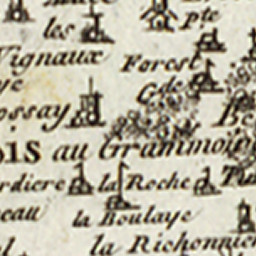 les pte
Vignaux Forest
ye Gde
ossay Be
ois au Grammoi
rdiere la Roche
eau la Boulaye
la Richonnier